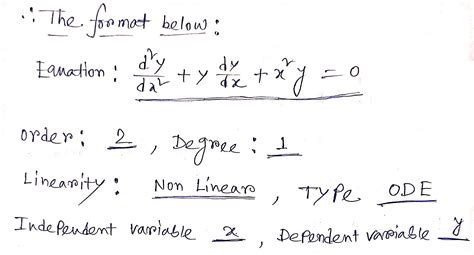 ∴ The format below:
Equation: d²y/dx² + y dy/dx + x²y = 0
order: 2, Degree: 1
Linearity: Non Linear, Type ODE
Independent variable x, Dependent variable y